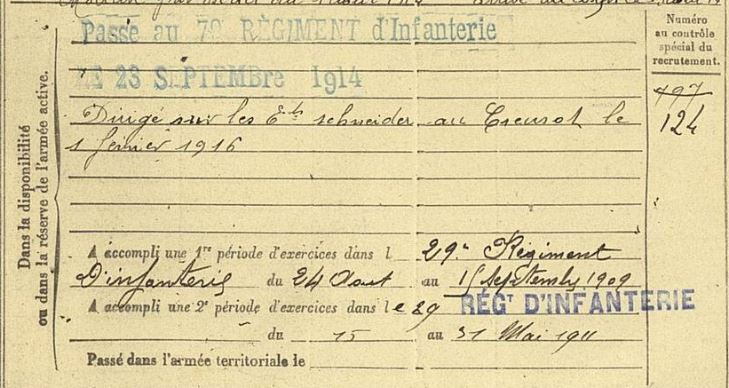 Passé au 79 RÉGIMENT d'Infanterie
LE 23 SEPTEMBRE 1914
Dirigé sur les Ets schneider au Creusot le
1 février 1916
Dans la disponibilité
ou dans la réserve de l'armée active.
A accompli une 1re période d'exercices dans l 29e Régiment
D'infanterie du 24 Aout au 15 Septembre 1909
A accompli une 2e période d'exercices dans le 29 RÉGT D'INFANTERIE
du 15 au 31 Mai 1911
Passé dans l'armée territoriale le
Numéro
au contrôle
spécial du
recrutement.
497
124